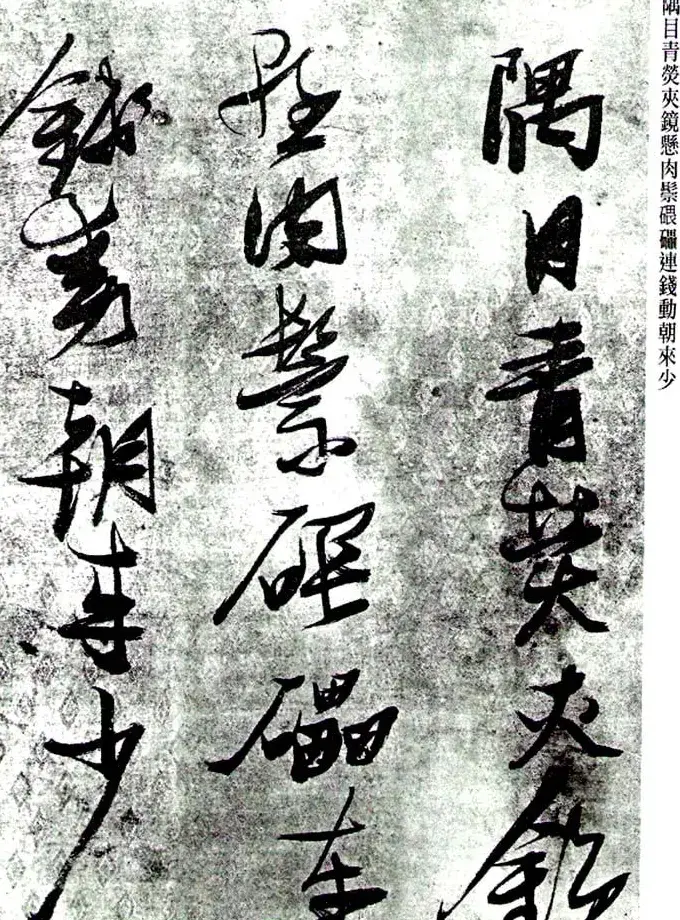 隅目青熒夾鏡懸肉鬃碨礧連錢動朝來少
隅目青熒夾鏡
懸肉鬃碨礧連
錢動朝來少